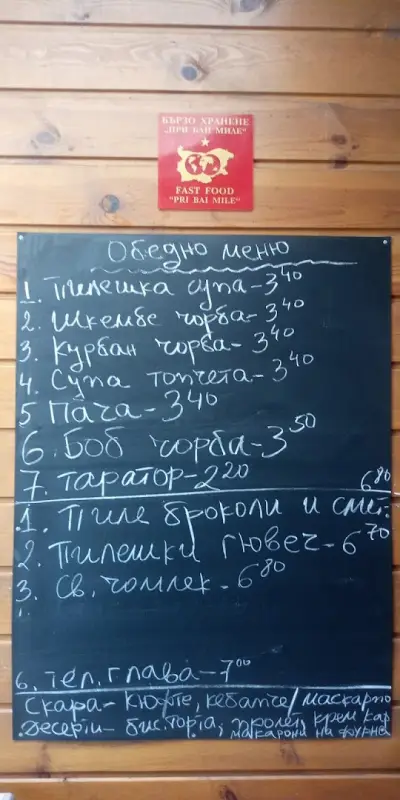 БЪРЗО ХРАНЕНЕ
"ПРИ БАЙ МИЛЕ"
FAST FOOD
"PRI BAI MILE"
Обедно меню
1. Пилешка супа - 3⁴⁰
2. Шкембе чорба - 3⁴⁰
3. Курбан чорба - 3⁴⁰
4. Супа топчета - 3⁴⁰
5 Пача - 3⁴⁰
6. Боб чорба - 3⁵⁰
7. Таратор - 2²⁰
1. Пиле броколи и смет. 6⁸⁰
2. Пилешки гювеч - 6⁷⁰
3. Св. чомлек - 6⁸⁰
6. Тел. глава - 7⁰⁰
Скара - кюфте, кебапче/
Десерти - бис. торта, крем кар
макарони на фурна